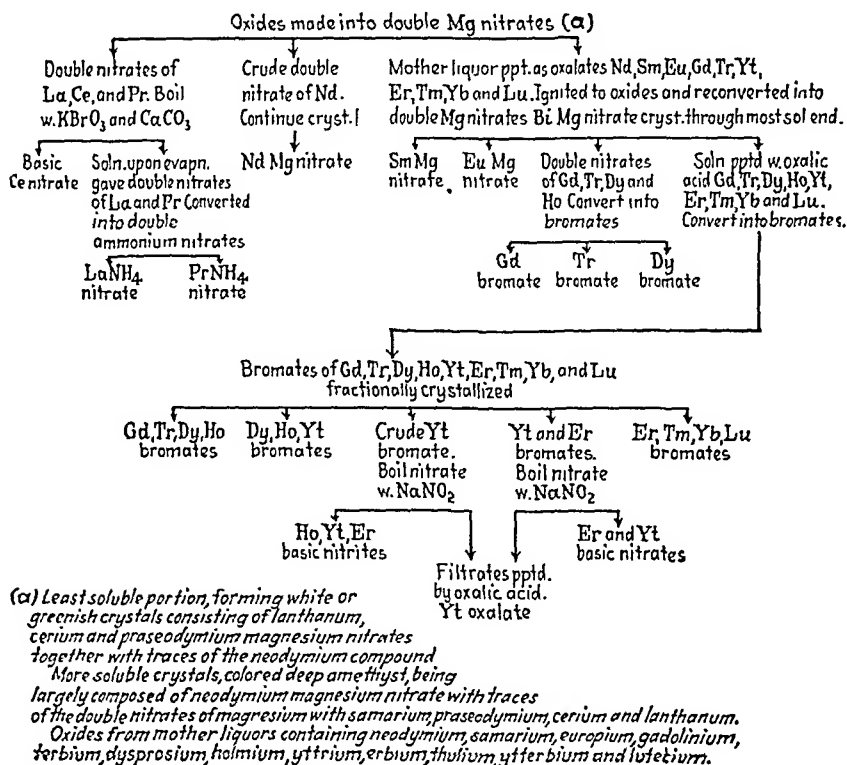 Oxides made into double Mg nitrates (a)
Double nitrates of
La, Ce, and Pr. Boil
w. KBrO₃ and CaCO₃
Crude double
nitrate of Nd.
Continue cryst.
Mother liquor ppt. as oxalates Nd, Sm, Eu, Gd, Tr, Yt,
Er, Tm, Yb and Lu. Ignited to oxides and reconverted into
double Mg nitrates Bi Mg nitrate cryst. through most sol end.
Basic
Ce nitrate
Soln. upon evapn.
gave double nitrates
of La and Pr Converted
into double
ammonium nitrates
Nd Mg nitrate
Sm Mg
nitrate
Eu Mg
nitrate
Double nitrates
of Gd, Tr, Dy and
Ho Convert into
bromates
Soln pptd w. oxalic
acid Gd, Tr, Dy, Ho, Yt,
Er, Tm, Yb and Lu.
Convert into bromates.
LaNH₄
nitrate
PrNH₄
nitrate
Gd
bromate
Tr
bromate
Dy
bromate
Bromates of Gd, Tr, Dy, Ho, Yt, Er, Tm, Yb, and Lu
fractionally crystallized
Gd, Tr, Dy, Ho
bromates
Dy, Ho, Yt
bromates
Crude Yt
bromate.
Boil nitrate
w. NaNO₂
Yt and Er
bromates.
Boil nitrate
w. NaNO₂
Er, Tm, Yb, Lu
bromates
Ho, Yt, Er
basic nitrites
Filtrates pptd.
by oxalic acid.
Yt oxalate
Er and Yt
basic nitrates
(a) Least soluble portion, forming white or
greenish crystals consisting of lanthanum,
cerium and praseodymium magnesium nitrates
together with traces of the neodymium compound
More soluble crystals, colored deep amethyst, being
largely composed of neodymium magnesium nitrate with traces
of the double nitrates of magresium with samarium, praseodymium, cerium and lanthanum.
Oxides from mother liquors containing neodymium, samarium, europium, gadolinium,
terbium, dysprosium, holmium, yttrium, erbium, thulium, ytterbium and lutecium.